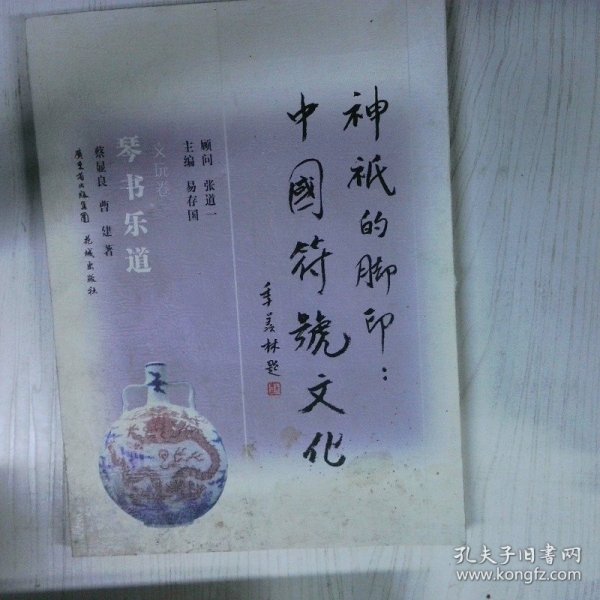 神祇的脚印：
中國符號文化
季羡林题
顾问 张道一
主编 易存国
文玩卷
琴书乐道
蔡显良 曹建 著
广东省出版集团 花城出版社
孔夫子旧书网
www.kongfz.com